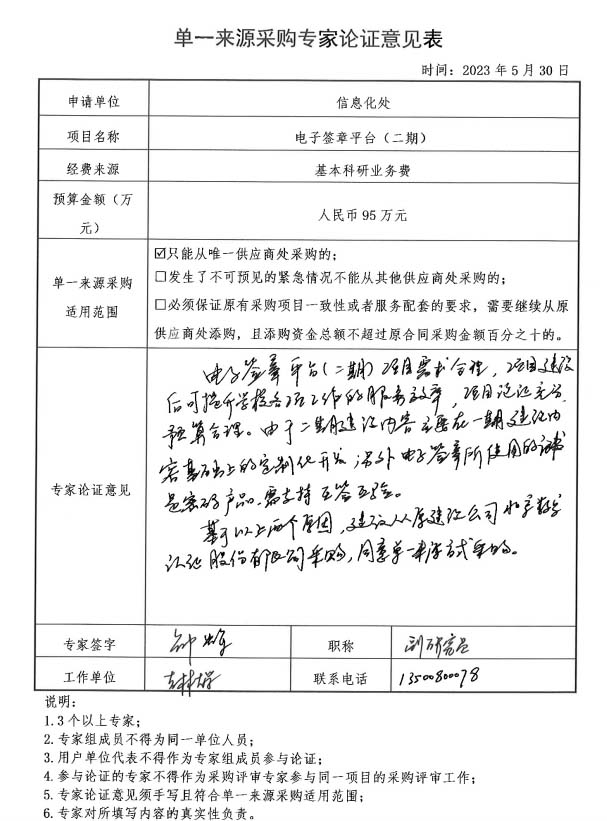 单一来源采购专家论证意见表
时间：2023 年 5 月 30 日
申请单位 信息化处
项目名称 电子签章平台（二期）
经费来源 基本科研业务费
预算金额（万
元） 人民币 95 万元
单一来源采购
适用范围
☑只能从唯一供应商处采购的；
□发生了不可预见的紧急情况不能从其他供应商处采购的；
□必须保证原有采购项目一致性或者服务配套的要求，需要继续从原
供应商处添购，且添购资金总额不超过原合同采购金额百分之十的。
专家论证意见
电子签章平台（二期）项目需求合理，项目建设
后可提升学校各项工作的服务效率，项目论证充分，
预算合理。由于二期建设内容主要在一期建设内
容基础上的定制化开发，另外电子签章所使用的证书
是密码产品，需支持互签互验。
基于以上两个原因，建议从原建设公司北京数字
认证股份有限公司采购，同意单一来源方式采购。
专家签字 职称 副研究员
工作单位 联系电话 13500800078
说明：
1.3 个以上专家；
2.专家组成员不得为同一单位人员；
3.用户单位代表不得作为专家组成员参与论证；
4.参与论证的专家不得作为采购评审专家参与同一项目的采购评审工作；
5.专家论证意见须手写且符合单一来源采购适用范围；
6.专家对所填写内容的真实性负责。